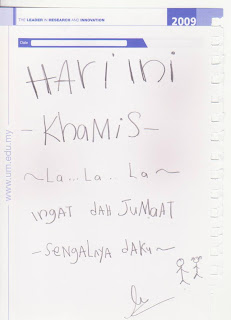 THE LEADER IN RESEARCH AND INNOVATION
2009
Date:
HARI INI
-KHAMIS-
~La... La.. La~
INGAT DAH JUMAAT
-SENGALNYA DAKU~
www.um.edu.my